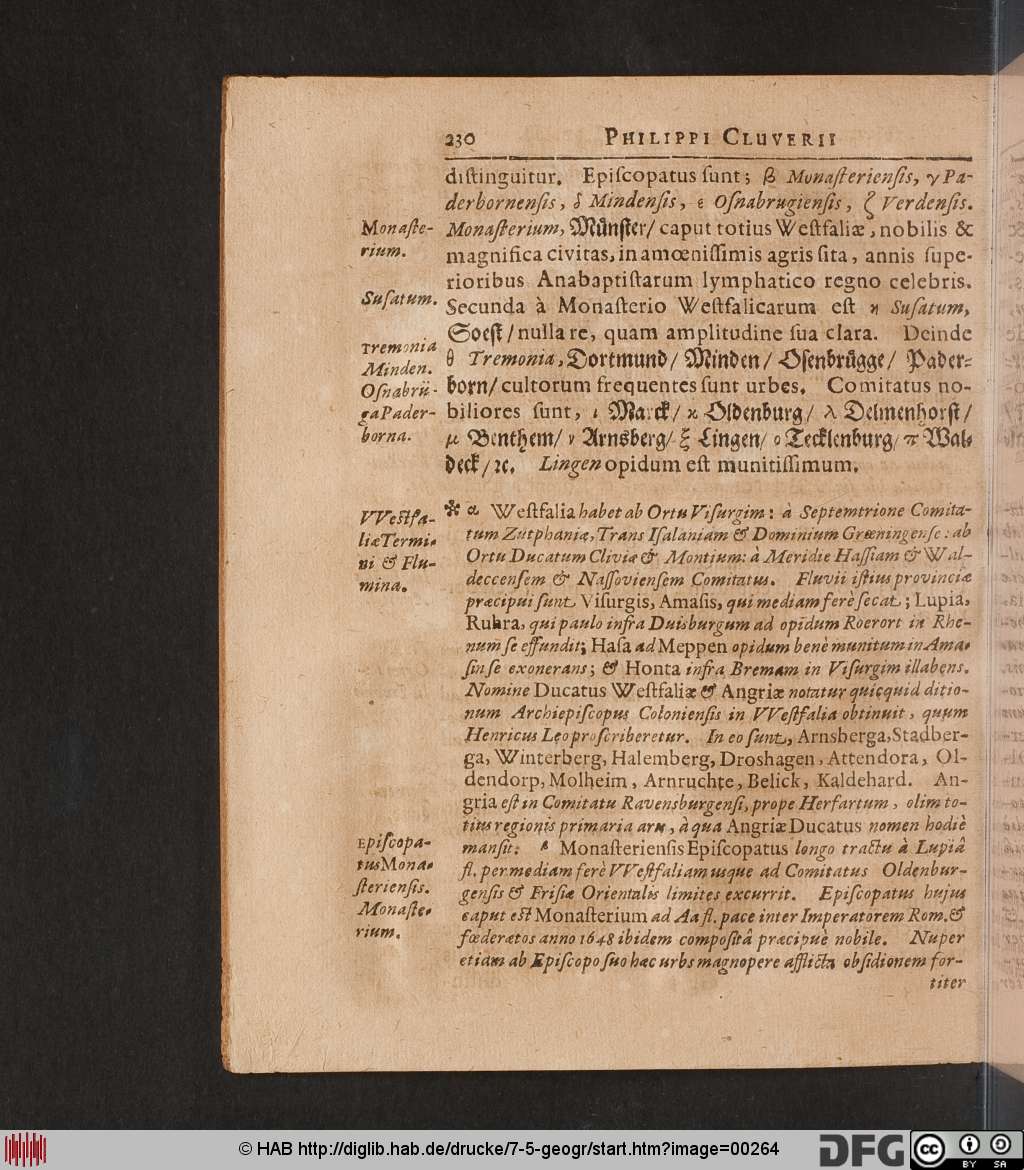 230 PHILIPPI CLUVERII
diſtinguitur. Epiſcopatus ſunt; β Monaſterienſis, γ Pa-
derbornenſis, δ Mindenſis, ε Oſnabrugienſis, ζ Verdenſis.
Monaſterium, Münſter/ caput totius Weſtfaliæ, nobilis &
magnifica civitas, in amœniſſimis agris ſita, annis ſupe-
rioribus Anabaptiſtarum lymphatico regno celebris.
Secunda à Monaſterio Weſtfalicarum eſt η Suſatum,
Soeſt/ nulla re, quam amplitudine ſua clara. Deinde
θ Tremonia, Dortmund/ Minden/ Oſenbrügge/ Pader-
born/ cultorum frequentes ſunt urbes. Comitatus no-
biliores ſunt, ι Marck/ κ Oldenburg/ λ Delmenhorſt/
μ Benthem/ ν Arnsberg/ ξ Lingen/ ο Tecklenburg/ π Wal-
deck/ ꝛc. Lingen opidum eſt munitiſſimum.
Monaſte-
rium.
Suſatum.
Tremonia
Minden.
Oſnabrü-
ga Pader-
borna.
* α Weſtfalia habet ab Ortu Viſurgim: à Septemtrione Comita-
tum Zutphaniæ, Trans Iſalaniam & Dominium Grœningenſe: ab
Ortu Ducatum Cliviæ & Montium: à Meridie Haſſiam & Wal-
deccenſem & Naſſovienſem Comitatus. Fluvii iſtius provinciæ
præcipui ſunt Viſurgis, Amaſis, qui mediam ferè ſecat; Lupia,
Ruhra, qui paulo infra Duisburgum ad opidum Roerort in Rhe-
num ſe effundit; Haſa ad Meppen opidum benè munitum in Ama-
ſin ſe exonerans; & Honta infra Bremam in Viſurgim illabens.
Nomine Ducatus Weſtfaliæ & Angriæ notatur quicquid ditio-
num Archiepiſcopus Colonienſis in VVeſtfalia obtinuit, quum
Henricus Leo proſcriberetur. In eo ſunt, Arnsberga, Stadber-
ga, Winterberg, Halemberg, Droshagen, Attendora, Ol-
dendorp, Molheim, Arnruchte, Belick, Kaldehard. An-
gria eſt in Comitatu Ravensburgenſi, prope Herfartum, olim to-
tius regionis primaria arx, à qua Angriæ Ducatus nomen hodiè
manſit: β Monaſterienſis Epiſcopatus longo tractu à Lupiâ
fl. per mediam ferè VVeſtfaliam usque ad Comitatus Oldenbur-
genſis & Friſiæ Orientalis limites excurrit. Epiſcopatus hujus
caput eſt Monaſterium ad Aa fl. pace inter Imperatorem Rom. &
fœderatos anno 1648 ibidem compoſitâ præcipuè nobile. Nuper
etiam ab Epiſcopo ſuo hæc urbs magnopere afflicta obſidionem for-
titer
VVeſtfa-
liæ Termi-
ni & Flu-
mina.
Epiſcopa-
tus Mona-
ſterienſis.
Monaſte-
rium.
© HAB http://diglib.hab.de/drucke/7-5-geogr/start.htm?image=00264
DFG
cc BY SA